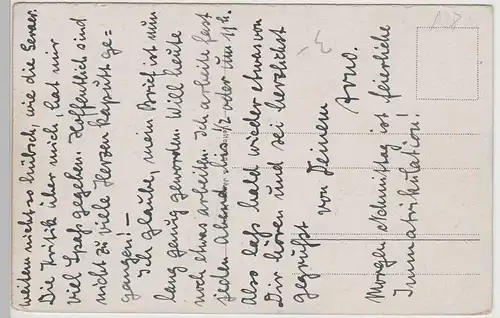 weitem nicht so hübsch, wie die Geraer.
Die Kritik über mich, hat mir
viel Spaß gegeben. Hoffentlich sind
nicht zu viele Herzen kaputt ge-
gangen! –
Ich glaube, mein Brief ist nun
lang genug geworden. Will heute
noch etwas arbeiten. Ich arbeite fast
jeden Abend bis 1/2 oder um 11 h.
Also laß bald wieder etwas von
Dir hören und sei herzlichst
gegrüßt von Deinem
Arno.
Morgen Nachmittag ist feierliche
Immatrikulation!